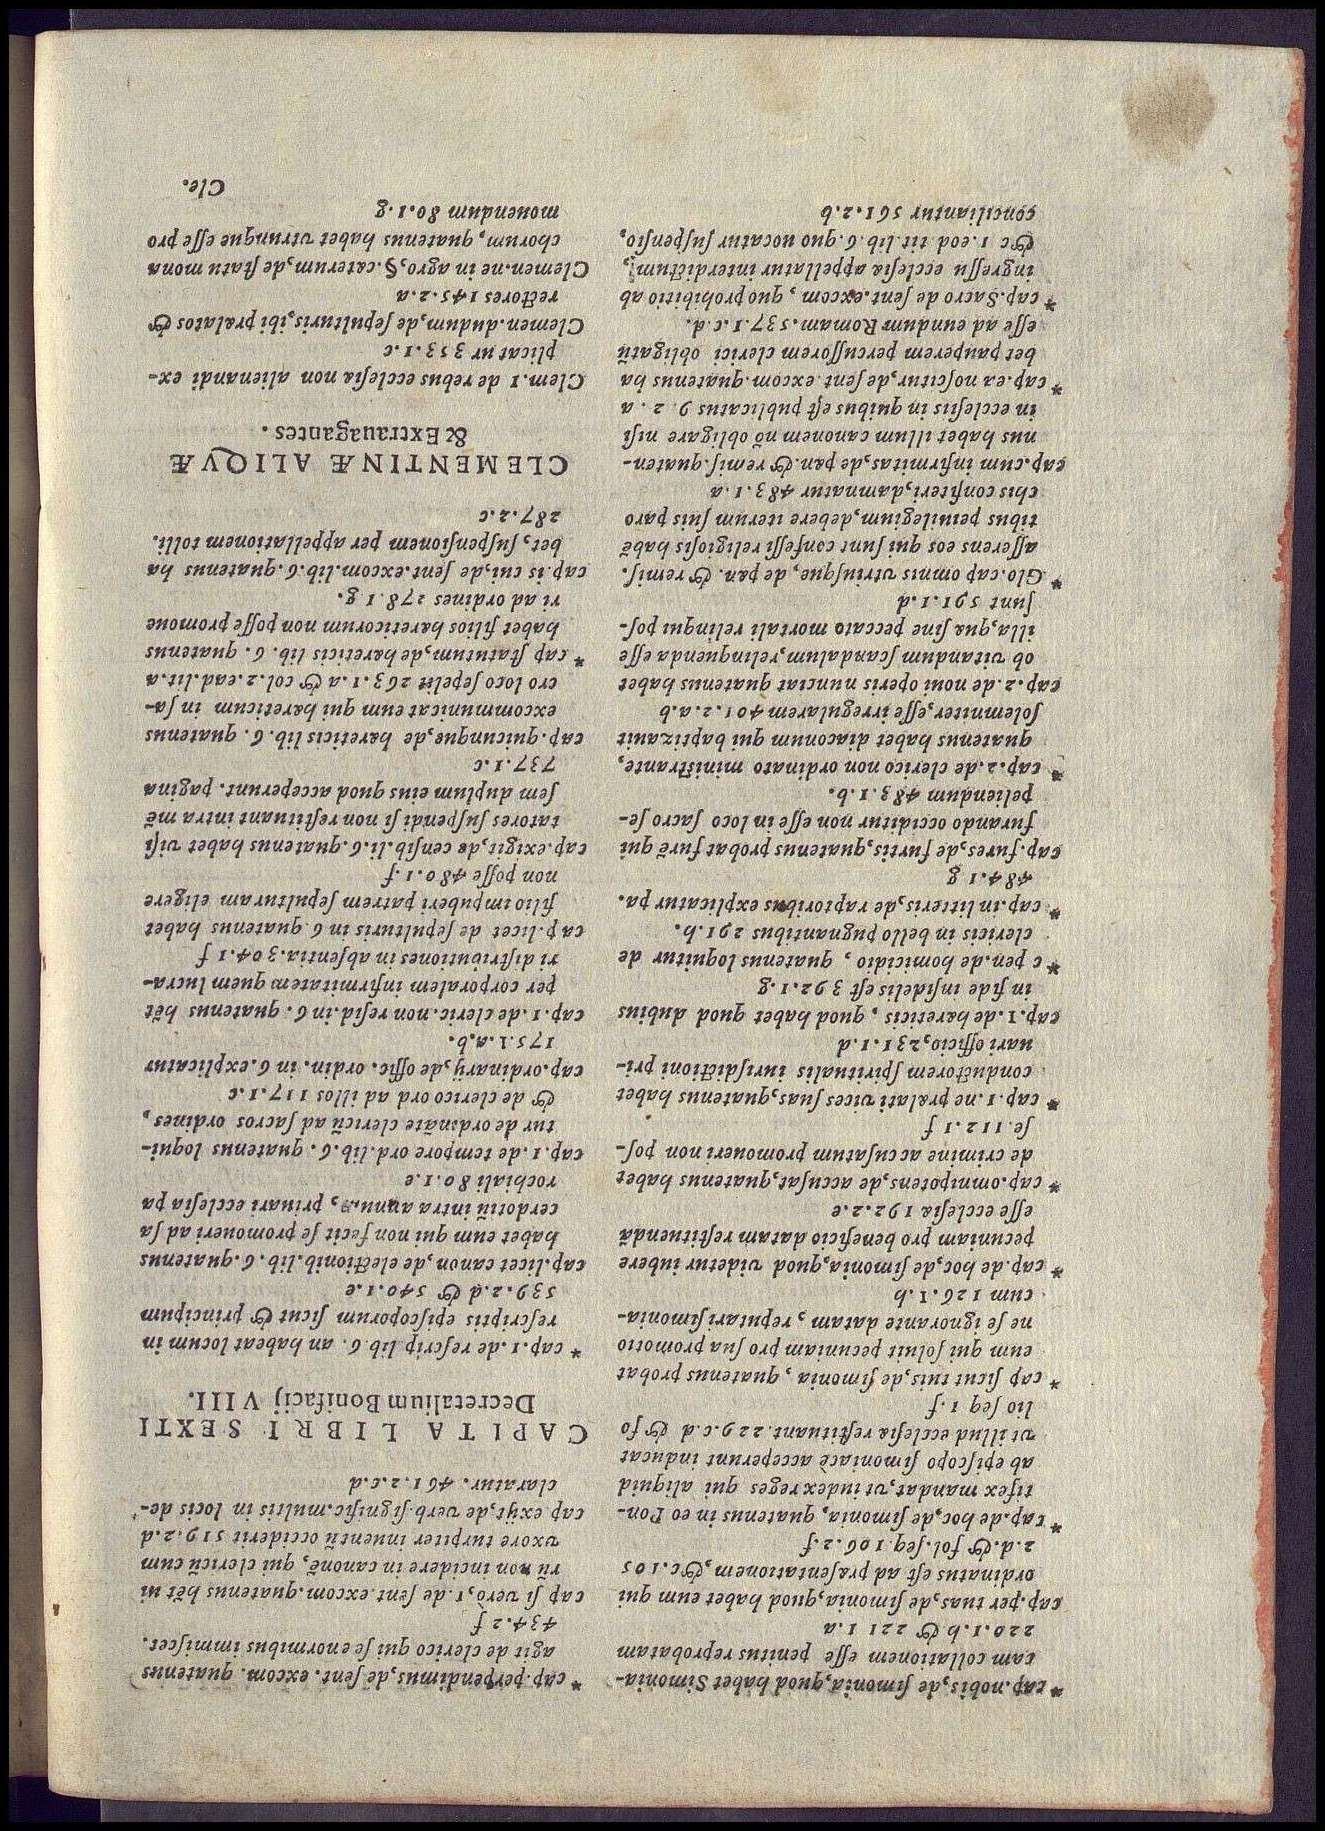 * cap.nobis,de ſimonia,quod habet Simonia-
cam collationem eſſe penitus reprobatam
220.1.b & 221 1.a
cap.per tuas,de ſimonia,quod habet eum qui
ordinatus eſt ad præſentationem,&c.105
2.d.& fol.ſeq.106.2.f
* cap.de hoc,de ſimonia, quatenus in eo Pon-
tifex mandat,vt index reges qui aliquid
ab epiſcopo ſimoniacè acceperunt inducat
vt illud eccleſiæ reſtituant.229.c.d & fo
lio ſeq 1.f
* cap ſicut tuis,de ſimonia , quatenus probat
eum qui ſoluit pecuniam pro ſua promotio
ne ſe ignorante datam , reputari ſimonia-
cum 126.1.b
* cap.de hoc,de ſimonia,quod videtur iubere
pecuniam pro beneficio datam reſtituendā
eſſe eccleſiæ 192.2.e
* cap.omnipotens,de accuſat,quatenus habet
de crimine accuſatum promoueri non poſ-
ſe.112.1 f
* cap.1.ne prælati vices ſuas,quatenus habet
conductorem ſpiritualis iuriſdictioni pri-
uari officio,231.1.d
cap.1.de hæreticis , quod habet quod dubius
in fide infidelis eſt 392.1.g
* c pen.de homicidio , quatenus loquitur de
clericis in bello pugnantibus 291.b.
* cap.in litteris,de raptoribus explicatur pa.
484.1 g
cap.fures,de furtis,quatenus probat furē qui
furando occiditur non eſſe in loco ſacro ſe-
peliendum 483.1.b.
* cap.2.de clerico non ordinato miniſtrante,
quatenus habet diaconum qui baptizauit
ſolemniter,eſſe irregularem 401.2.a.b
cap.2.de noui operis nunciat quatenus habet
ob uitandum ſcandalum,relinquenda eſſe
illa,quæ ſine peccato mortali relinqui poſ-
ſunt 591.1.d
* Glo.cap omnis vtriuſque, de pœn. & remiſ.
aſſerens eos qui ſunt confeſſi religioſis habē
tibus peiuilegium,debere iterum ſuis paro
chis confiteri,damnatur 483.1.a
cap.cum infirmitas,de pœn.& remiſ.quaten-
nus habet illum canonem nō obligare niſi
in eccleſiis in quibus eſt publicatus 9. 2. a
* cap.ea noſcitur,de ſent.excom.quatenus ha
bet pauperem percuſſorem clerici obligatū
eſſe ad eundum Romam.537.1.c.d.
* cap.Sacro de ſent.excom , quo prohibitio ab
ingreſſu eccleſiæ appellatur interdictum,
&c 1.eod tit.lib.6.quo uocatur ſuſpenſio,
conciliantur 561.2.b
* cap.perpendimus,de ſent. excom. quatenus
agit de clerico qui ſe enormibus immiſcet.
434.2 f
cap ſi verò,1.de ſent.excom.quatenus hēt ui
rū non incidere in canonē, qui clericū cum
vxore turpiter inuentū occiderit 519.2.d
cap exijt,de verb.ſignific.multis in locis de-
claratur. 461.2.c.d
CAPITA LIBRI SEXTI
Decretalium Bonifacij VIII.
* cap.1.de reſcrip lib 6. an habeat locum in
reſcriptis epiſcoporum ſicut & principum
539.2.d & 540.1.e
cap.licet canon,de electionib.lib.6.quatenus
habet eum qui non fecit ſe promoueri ad ſa
cerdotiū intra annū, priuari eccleſia pa
rochiali 80.1.e
cap.1.de tempore ord.lib.6. quatenus loqui-
tur de ordināte clericū ad ſacros ordines,
& de clerico ord ad illos 117.1.c
cap.ordinarij,de offic. ordin. in 6.explicatur
175.1.a.b.
cap.1.de cleric.non reſid.in 6. quatenus hēt
per corporalem infirmitatem quem lucra-
ri diſtributiones in abſentia.304.1 f
cap.licet de ſepulturis in 6 quatenus habet
filio impuberi patrem ſepulturam eligere
non poſſe 480.1.f
cap.exigit,de cenſib.li.6.quatenus habet viſi
tatores ſuſpendi ſi non reſtituant intra mē
ſem duplum eius quod acceperunt. pagina
737.1.c
cap.quicunque,de hæreticis lib.6. quatenus
excommunicat eum qui hæreticum in ſa-
cro loco ſepelit 263.1.a & col.2.ead.lit.a
* cap ſtatutum,de hæreticis lib.6. quatenus
habet filios hæreticorum non poſſe promoue
ri ad ordines 278.1 g.
cap.is cui,de ſent.excom.lib.6.quatenus ha
bet, ſuſpenſionem per appellationem tolli.
287.2.c
CLEMENTINÆ ALIQVÆ
& Extrauagantes.
Clem.1 de rebus eccleſiæ non alienandi ex-
plicatur 353.1.c
Clemen.dudum,de ſepulturis,ibi prælatos &
rectores 145.2.a
Clemen.ne in agro,§.cæterum,de ſtatu mona
chorum, quatenus habet vtrunque eſſe pro
mouendum 80.1.g
Cle.